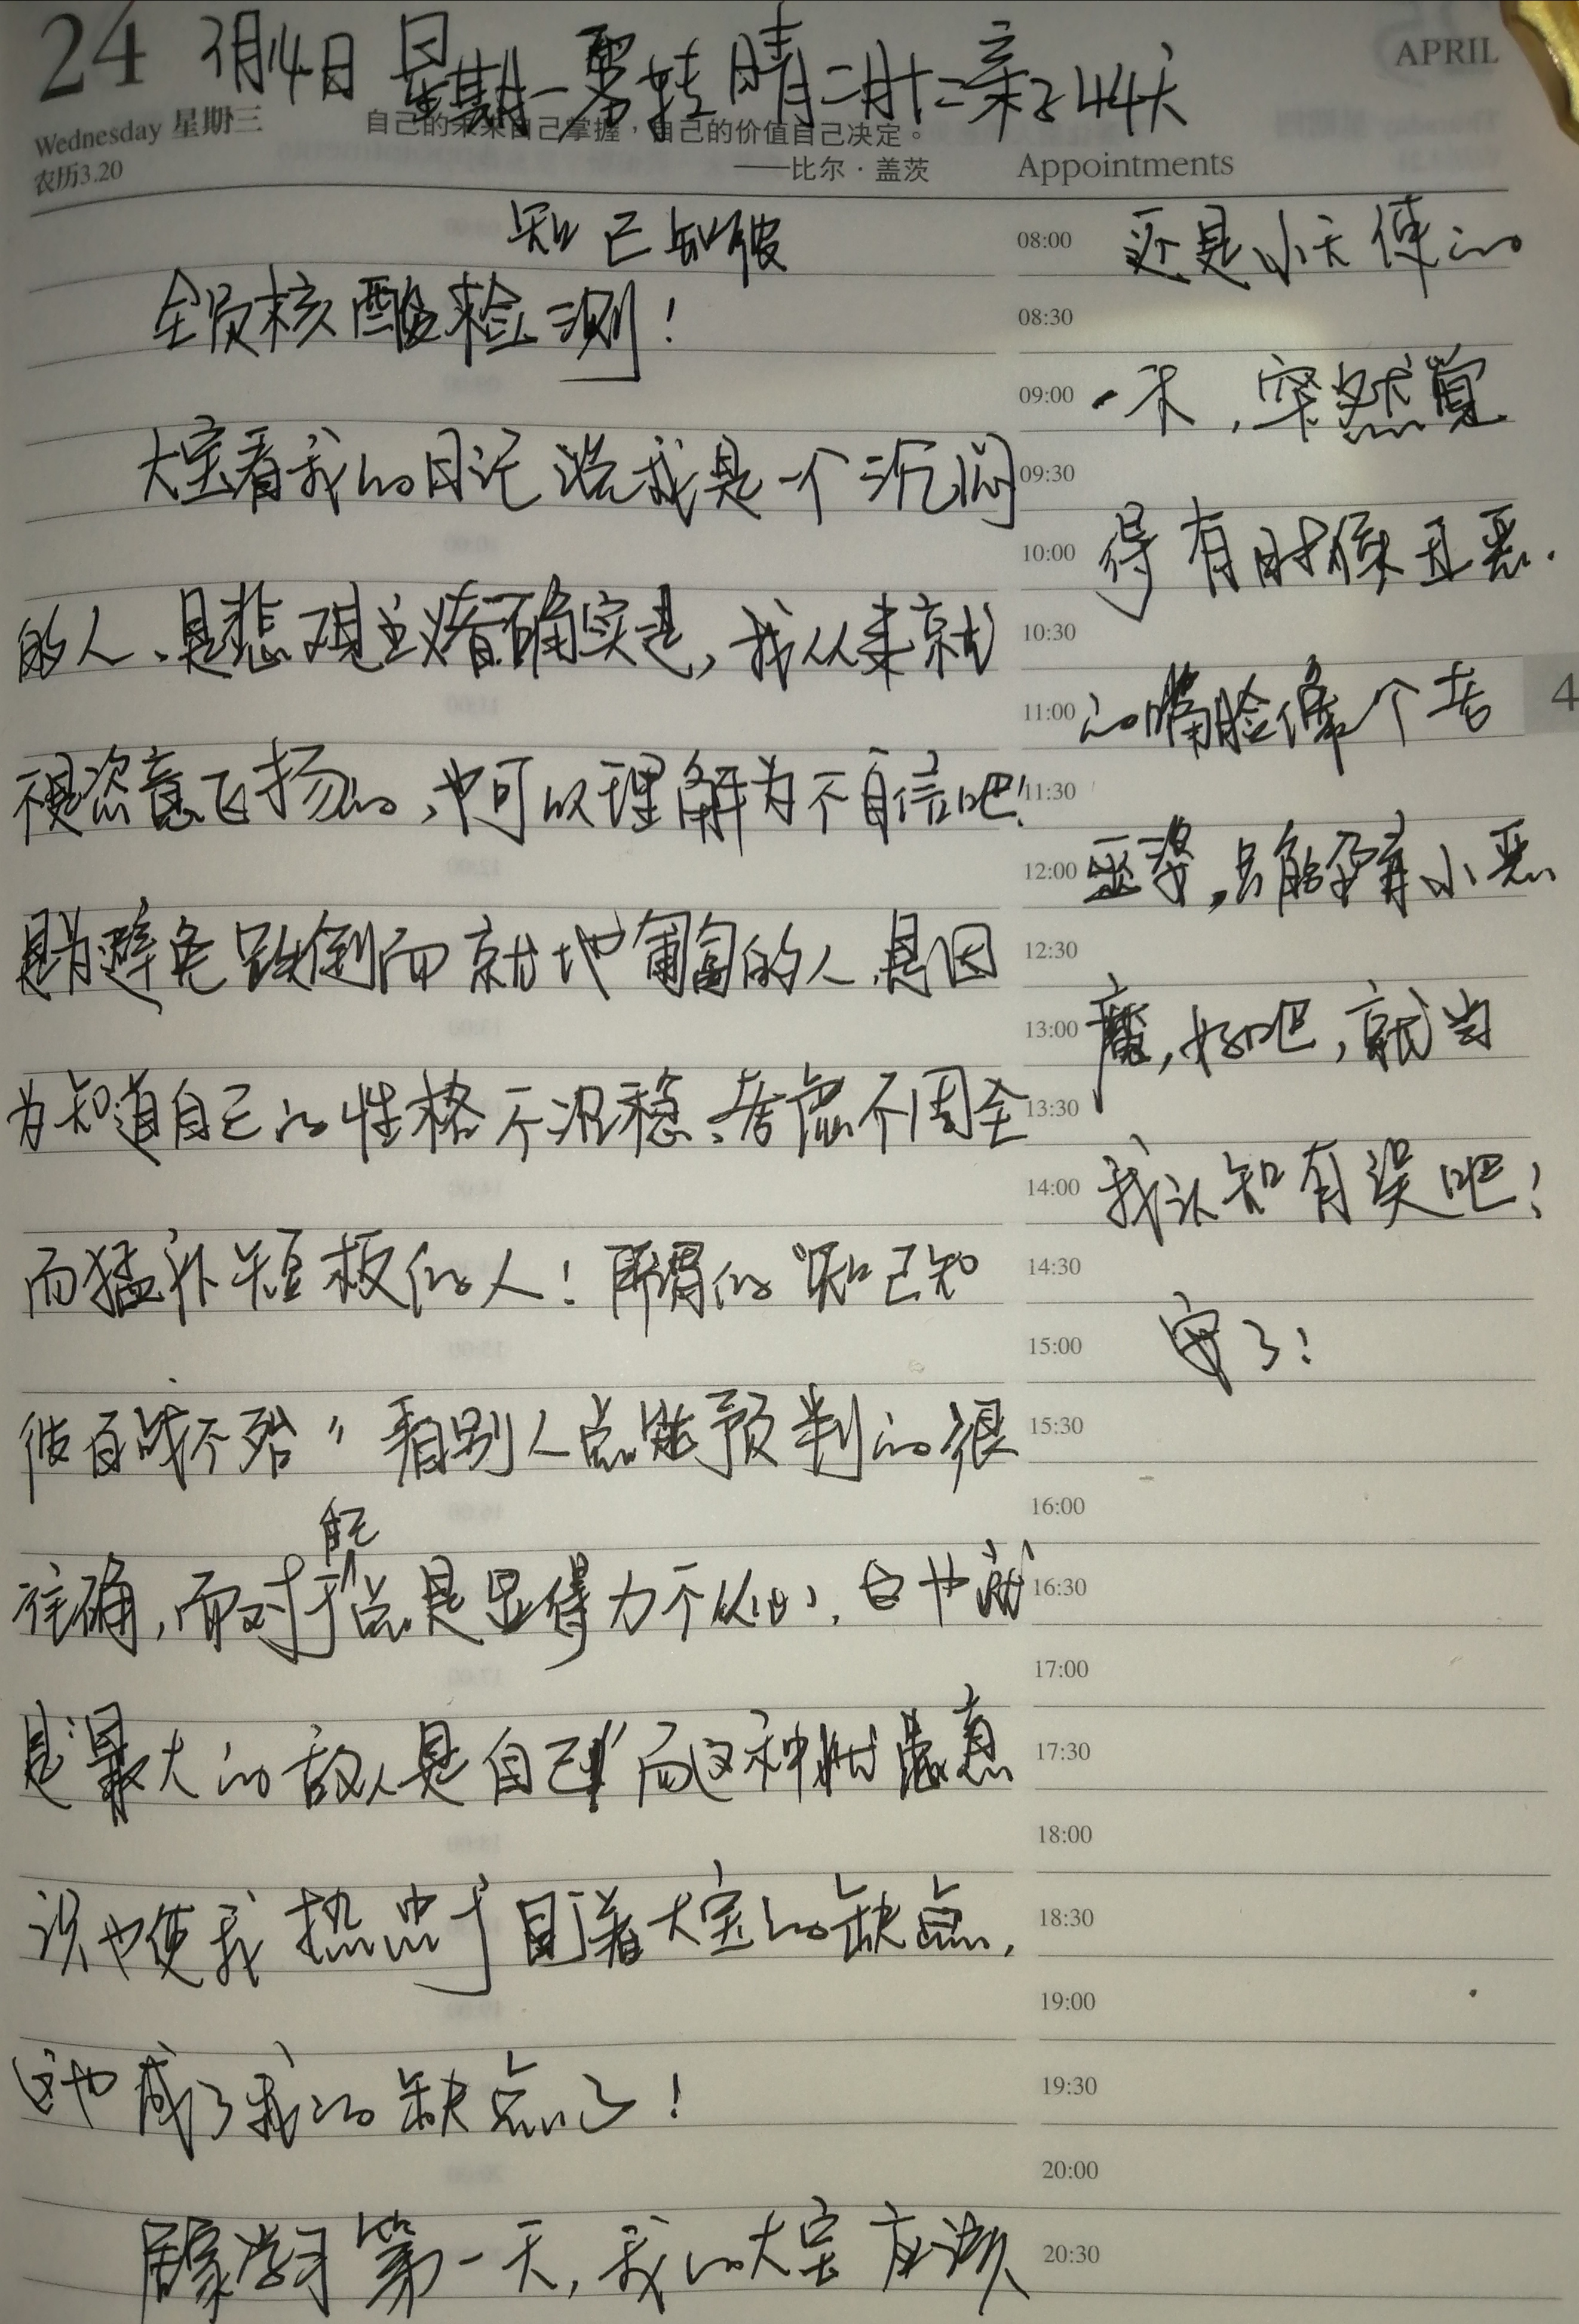 24
3月14日 星期一 雾转晴 二月十二 亲子44天
APRIL
Wednesday 星期三
农历3.20
自己的未来自己掌握，自己的价值自己决定。
——比尔·盖茨
Appointments
知己知彼
全员核酸检测！
大宝看我的日记说我是一个沉闷
的人、是悲观主义者，确实是，我从来就
不是恣意飞扬的，也可以理解为不自信吧！
是为避免跌倒而就地匍匐的人，是因
为知道自己的性格不沉稳、考虑不周全
而猛补短板的人！所谓的"知己知
彼百战不殆"看别人总能预判的很
准确，而对于自己总是显得力不从心，这也就
是"最大的敌人是自己！"而这种忧虑意
识也使我热忠于盯着大宝的缺点，
这也成了我的缺点了！
居家学习第一天，我的大宝应该
08:00 还是小天使的
08:30
09:00 一天，突然觉
09:30
10:00 得有时候丑恶
10:30
11:00 的嘴脸像个老
11:30
12:00 巫婆，只能孕育小恶
12:30
13:00 魔，好吧，就当
13:30
14:00 我认知有误吧！
14:30
15:00 安了！
15:30
16:00
16:30
17:00
17:30
18:00
18:30
19:00
19:30
20:00
20:30
4